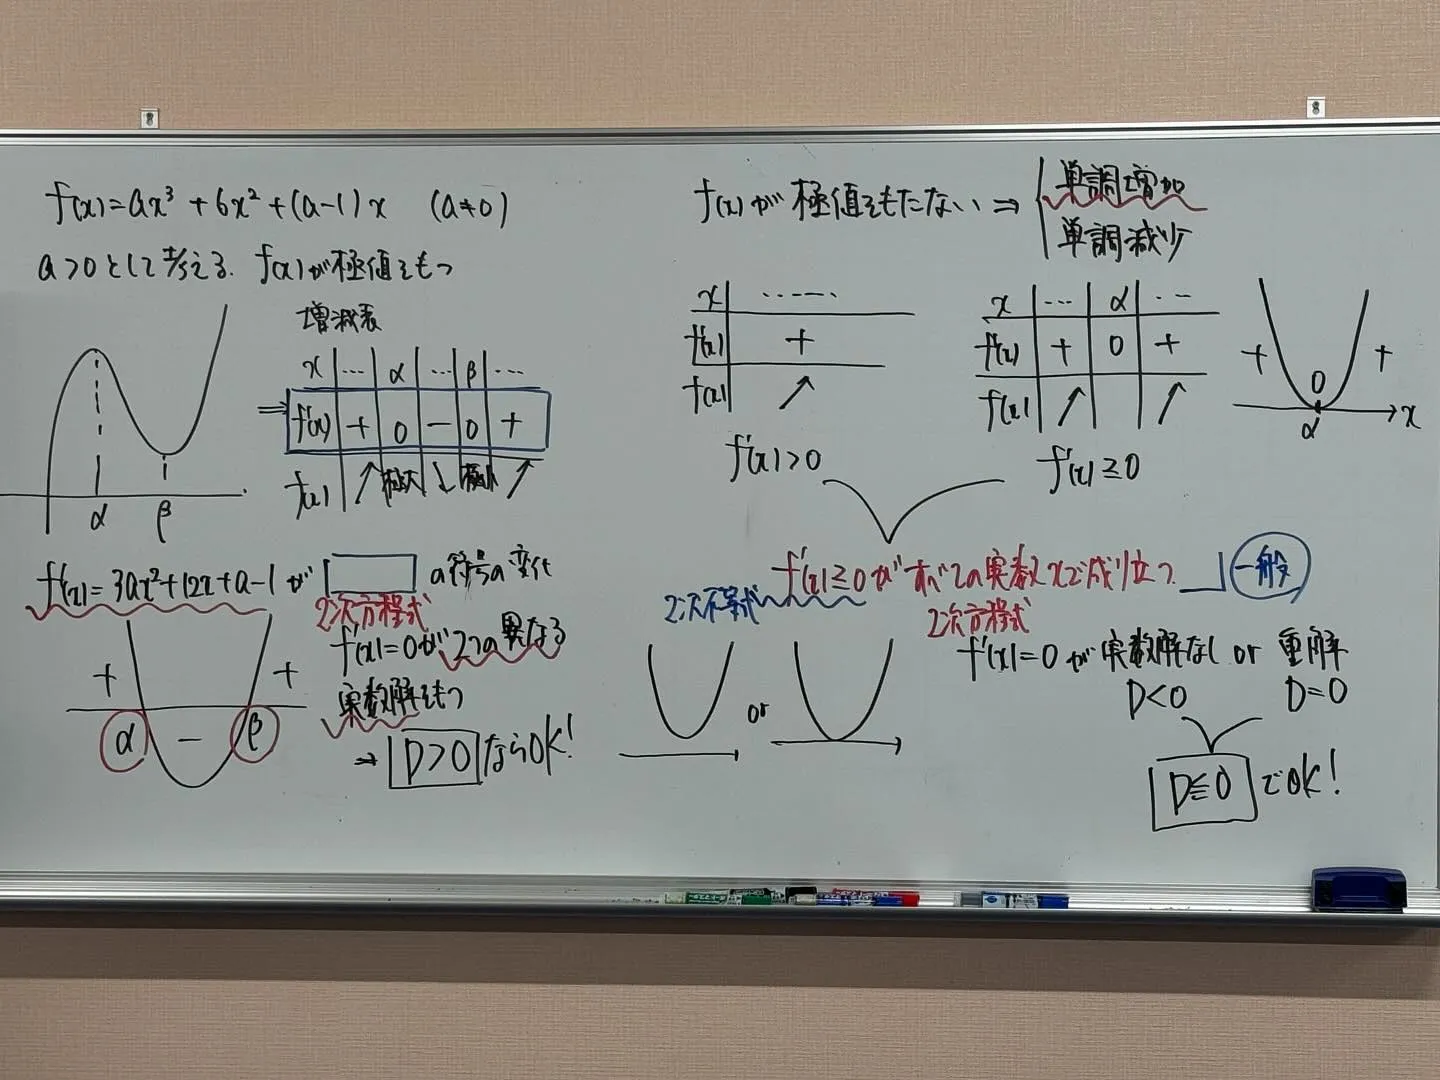 f(x)=ax³+6x²+(a-1)x (a≠0)
a>0として考える. f(x)が極値をもつ
増減表
x … α … β …
⇒ f'(x) + 0 - 0 +
f(x) ↗ 極大 ↘ 極小 ↗
α β
f'(x)=3ax²+12x+a-1が の符号の変化
2次方程式
f'(x)=0が2つの異なる
実数解をもつ
+ α - β +
⇒ D>0 ならOK!
f(x)が極値をもたない ⇒ 単調増加
単調減少
x ……
f'(x) +
f(x) ↗
f'(x)>0
x … α …
f'(x) + 0 +
f(x) ↗ ↗
f'(x)≧0
+ 0 +
α x
f'(x)≧0がすべての実数xで成り立つ 一般
2次不等式 2次方程式
f'(x)=0が実数解なし or 重解
D<0 D=0
or
D≦0 でOK!